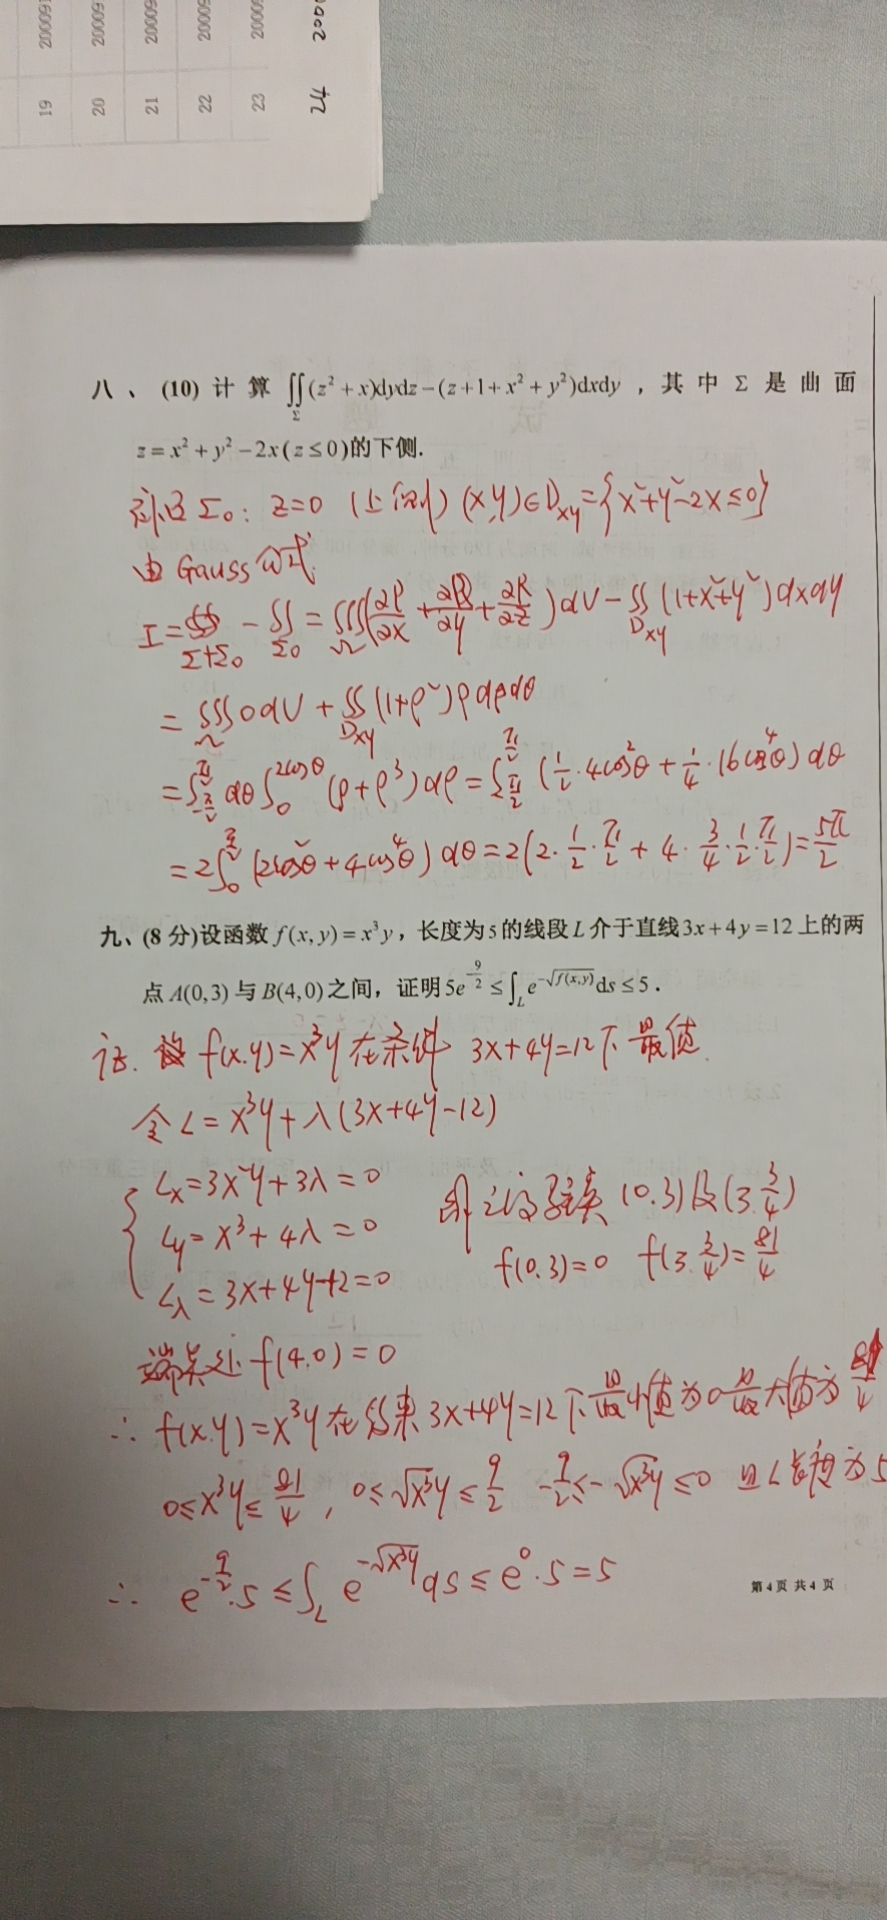 19 200091
20 20009
21 20009
22 20009
23 2000
八、(10) 计算 ∬_Σ (z²+x)dydz-(z+1+x²+y²)dxdy，其中 Σ 是曲面
z=x²+y²-2x(z≤0)的下侧.
补记 Σ₀: z=0 (上侧) (x,y)∈D_xy={x²+y²-2x≤0}
由 Gauss 公式
I=∯_{Σ+Σ₀} - ∬_{Σ₀} = ∭_Ω(∂P/∂x+∂Q/∂y+∂R/∂z)dV-∬_{Dxy}(1+x²+y²)dxdy
=∭_Ω 0dV+∬_{Dxy}(1+ρ²)ρdρdθ
=∫_{-π/2}^{π/2}dθ∫_0^{2cosθ}(ρ+ρ³)dρ=∫_{-π/2}^{π/2}(1/2·4cos²θ+1/4·16cos⁴θ)dθ
=2∫_0^{π/2}(2cos²θ+4cos⁴θ)dθ=2(2·1/2·π/2+4·3/4·1/2·π/2)=5π/2
九、(8 分)设函数 f(x,y)=x³y，长度为5的线段 L 介于直线3x+4y=12上的两
点 A(0,3) 与 B(4,0) 之间，证明 5e^{-9/2}≤∫_L e^{-√f(x,y)}ds≤5.
证. f(x.y)=x³y 在条件 3x+4y=12下 最值
令 L=x³y+λ(3x+4y-12)
Lx=3x²y+3λ=0
Ly=x³+4λ=0
Lλ=3x+4y-12=0
驻点 (0.3)及(3.3/4)
f(0.3)=0 f(3.3/4)=81/4
端点处 f(4.0)=0
∴ f(x.y)=x³y 在约束 3x+4y=12下最小值为0最大值为81/4
0≤x³y≤81/4, 0≤√x³y≤9/2 -9/2≤-√x³y≤0 且L长度为5
∴ e^{-9/2}·5≤∫_L e^{-√x³y}ds≤e⁰·5=5
第 4 页 共 4 页